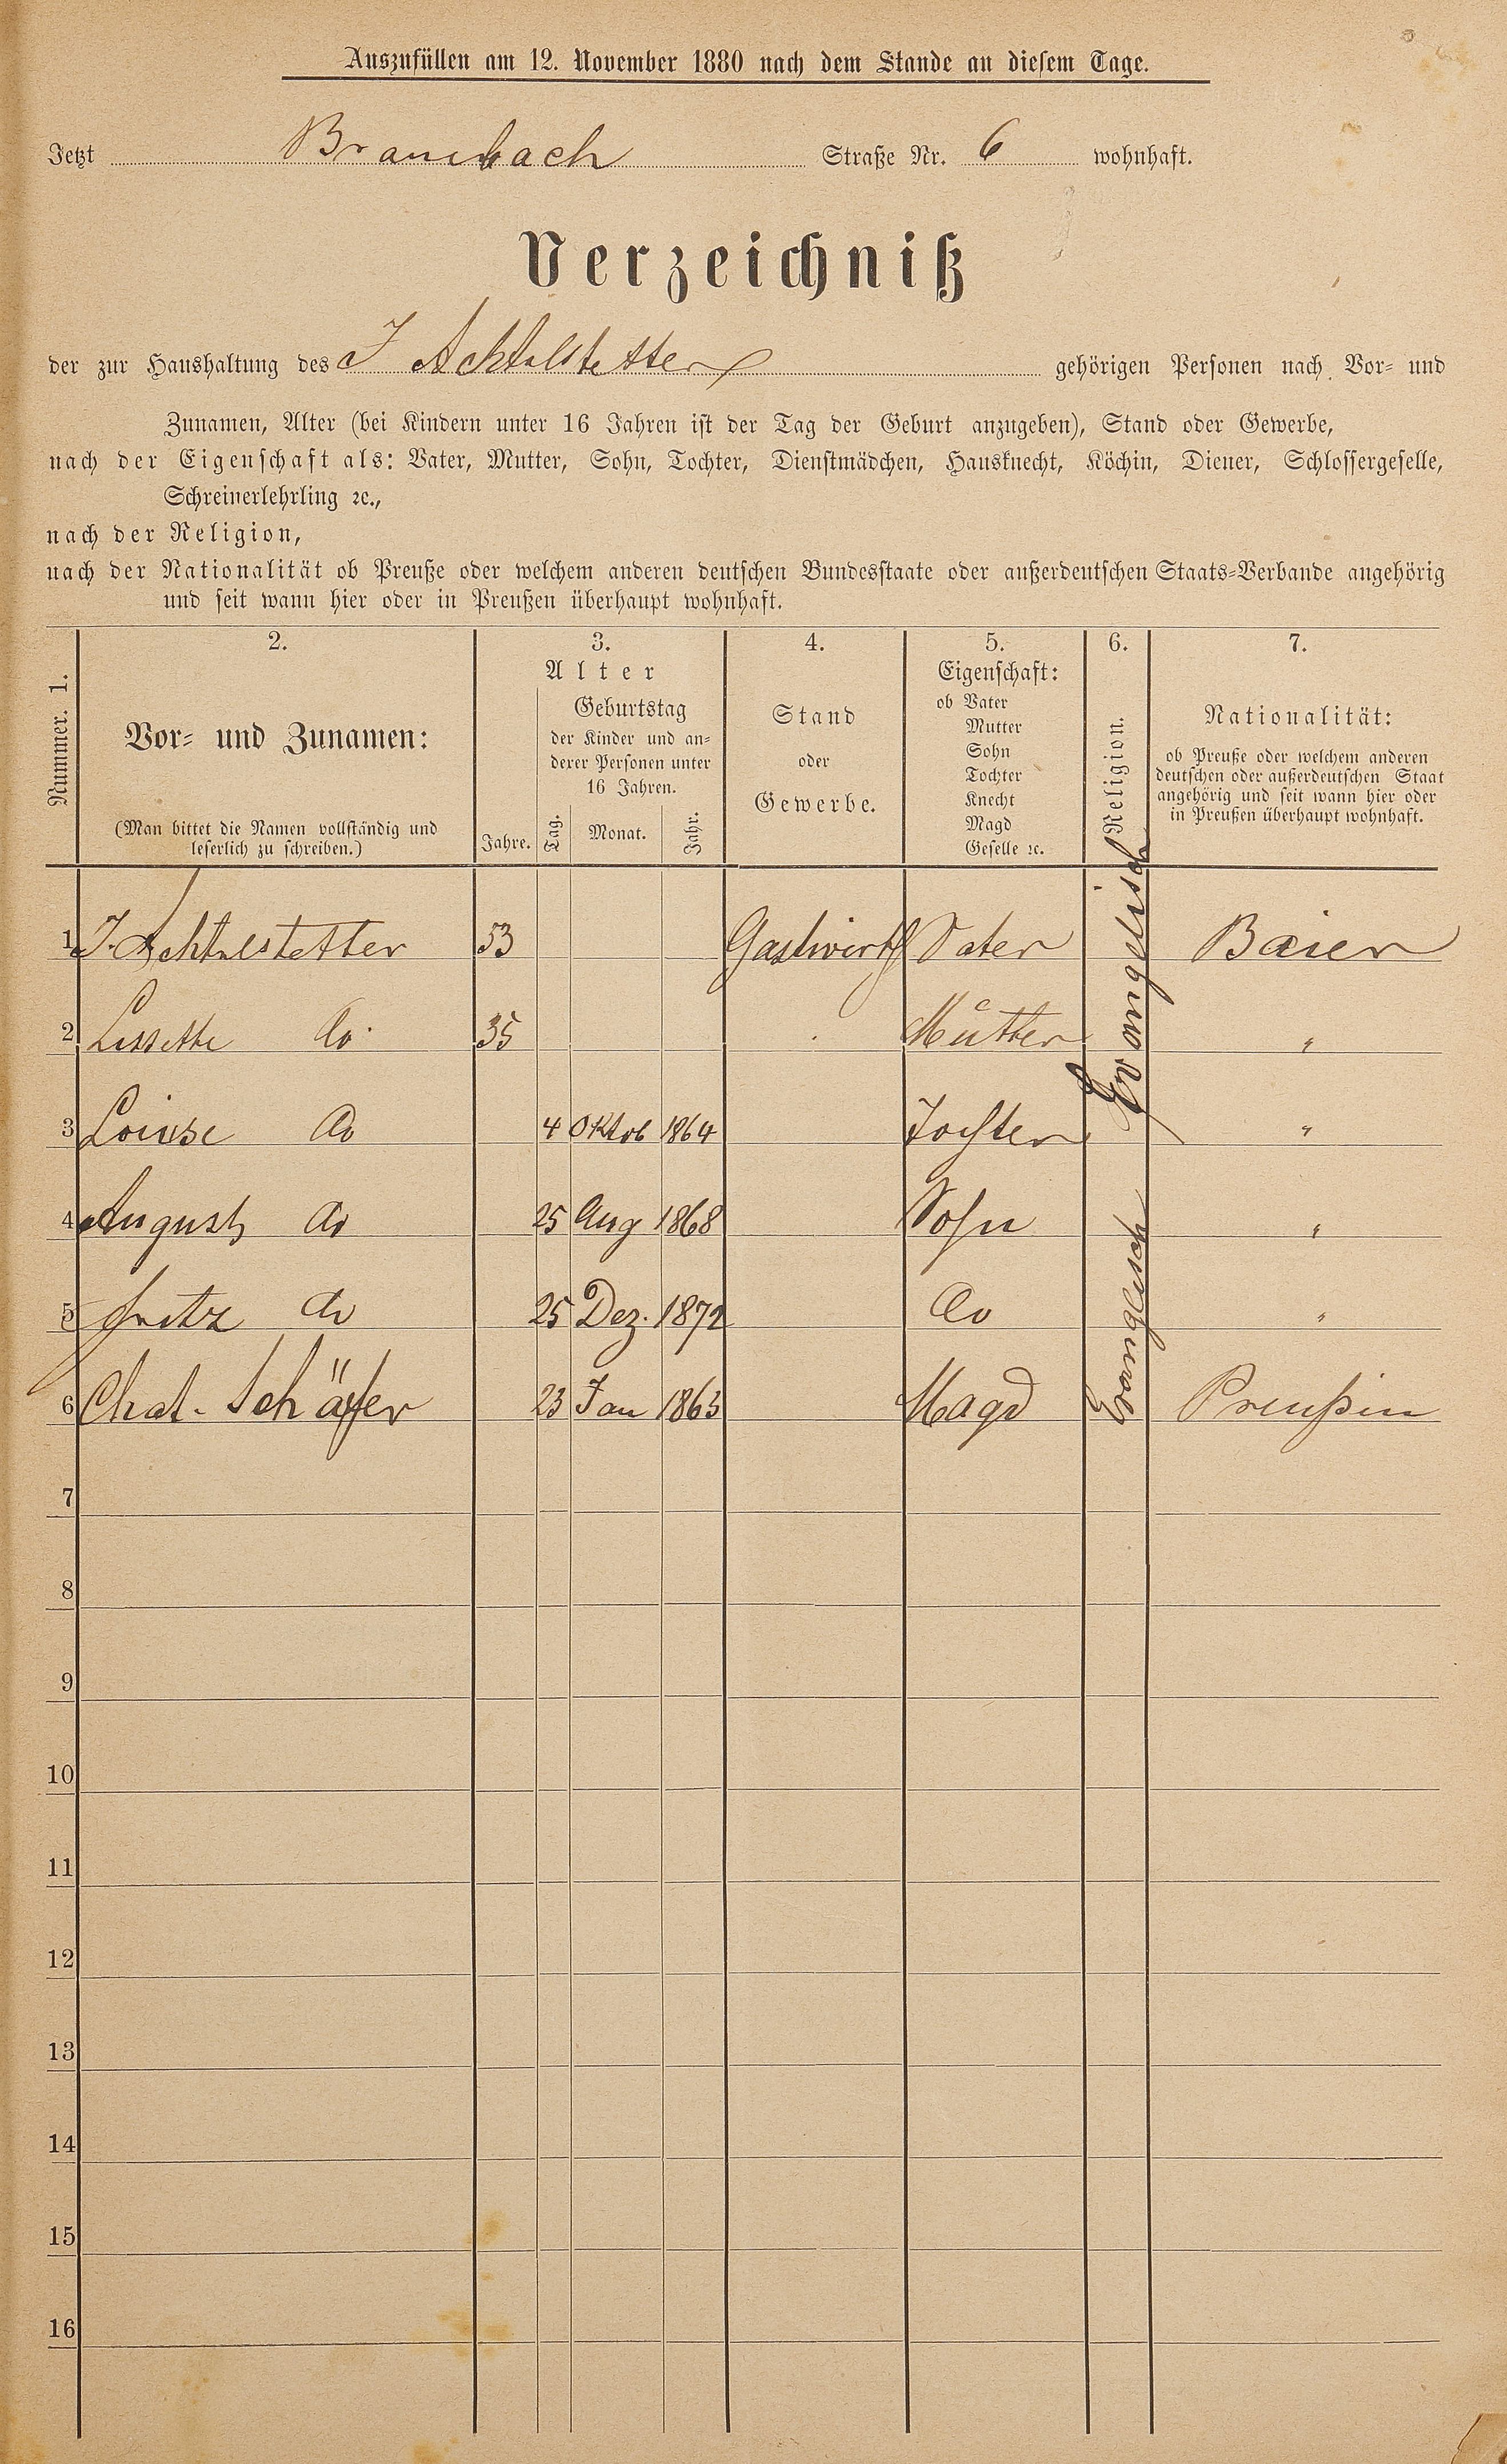 Auszufüllen am 12. November 1880 nach dem Stande an diesem Tage.
Jetzt Braubach Straße Nr. 6 wohnhaft.
Verzeichniß
der zur Haushaltung des J Achtelstetter gehörigen Personen nach Vor- und
Zunamen, Alter (bei Kindern unter 16 Jahren ist der Tag der Geburt anzugeben), Stand oder Gewerbe,
nach der Eigenschaft als: Vater, Mutter, Sohn, Tochter, Dienstmädchen, Hausknecht, Köchin, Diener, Schlossergeselle,
Schreinerlehrling ꝛc.,
nach der Religion,
nach der Nationalität ob Preuße oder welchem anderen deutschen Bundesstaate oder außerdeutschen Staats-Verbande angehörig
und seit wann hier oder in Preußen überhaupt wohnhaft.
Nummer. 1.
2.
Vor- und Zunamen:
(Man bittet die Namen vollständig und
leserlich zu schreiben.)
3.
Alter
Jahre.
Geburtstag
der Kinder und an-
derer Personen unter
16 Jahren.
Tag. Monat. Jahr.
4.
Stand
oder
Gewerbe.
5.
Eigenschaft:
ob Vater
Mutter
Sohn
Tochter
Knecht
Magd
Geselle ꝛc.
6.
Religion.
7.
Nationalität:
ob Preuße oder welchem anderen
deutschen oder außerdeutschen Staat
angehörig und seit wann hier oder
in Preußen überhaupt wohnhaft.
1 J. Achtelstetter 53 Gastwirth Vater Evangelisch Baier
2 Lissette do 35 Mutter "
3 Louise do 4 Oktob 1864 Tochter "
4 August do 25 Aug 1868 Sohn Evangelisch "
5 Fritz do 25 Dez. 1872 do "
6 Schäfer 23 Jan 1863 Magd Preußin
7
8
9
10
11
12
13
14
15
16